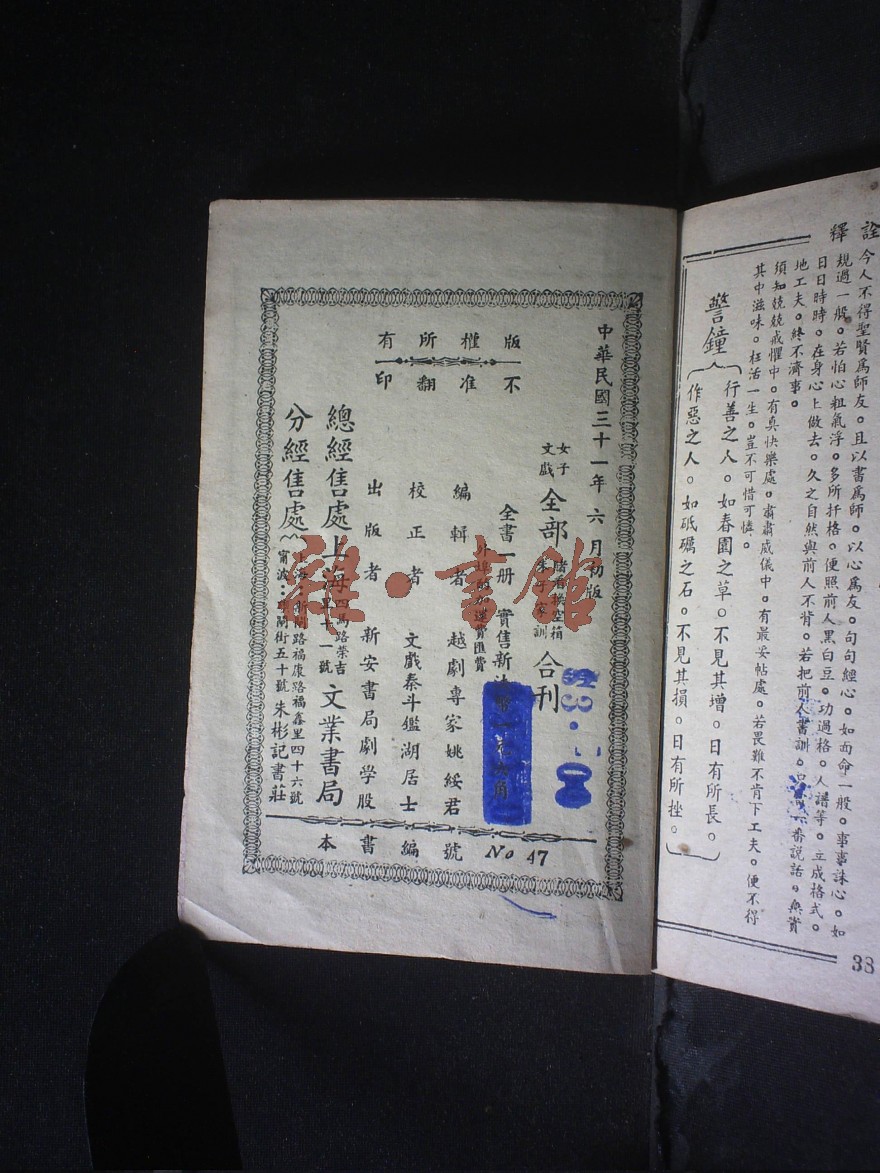 詮釋
今人不得聖賢爲師友。且以書爲師。以心爲友。句句經心。如面命一般。事事誅心。如
規過一般。若怕心粗氣浮。多所扞格。便照前人黑白豆。功過格。人譜等。立成格式。
日日時時。在身心上做去。久之自然與前人不背。若把前人書訓。只爲一番說話。無實
地工夫。終不濟事。
須知兢兢戒懼中。有真快樂處。肅肅威儀中。有最妥帖處。若畏難不肯下工夫。便不得
其中滋味。枉活一生。豈不可惜可憐。
警鐘
行善之人。如春園之草。不見其增。日有所長。
作惡之人。如砥礪之石。不見其損。日有所挫。
38
中華民國三十一年六月初版
版權所有
不准翻印
女子文戲
全部
合刊
全書一册 實售新法幣一元六角
外埠酌加運費匯費
編輯者 越劇專家姚綏君
校正者 文戲泰斗鑑湖居士
出版者 新安書局劇學股
總經售處 上海四馬路榮吉里十一號 文業書局
分經售處
上海·新閘路福康路福鑫里四十六號
寗波·街五十號 朱彬記書莊
本書編號 No 47
雜·書館